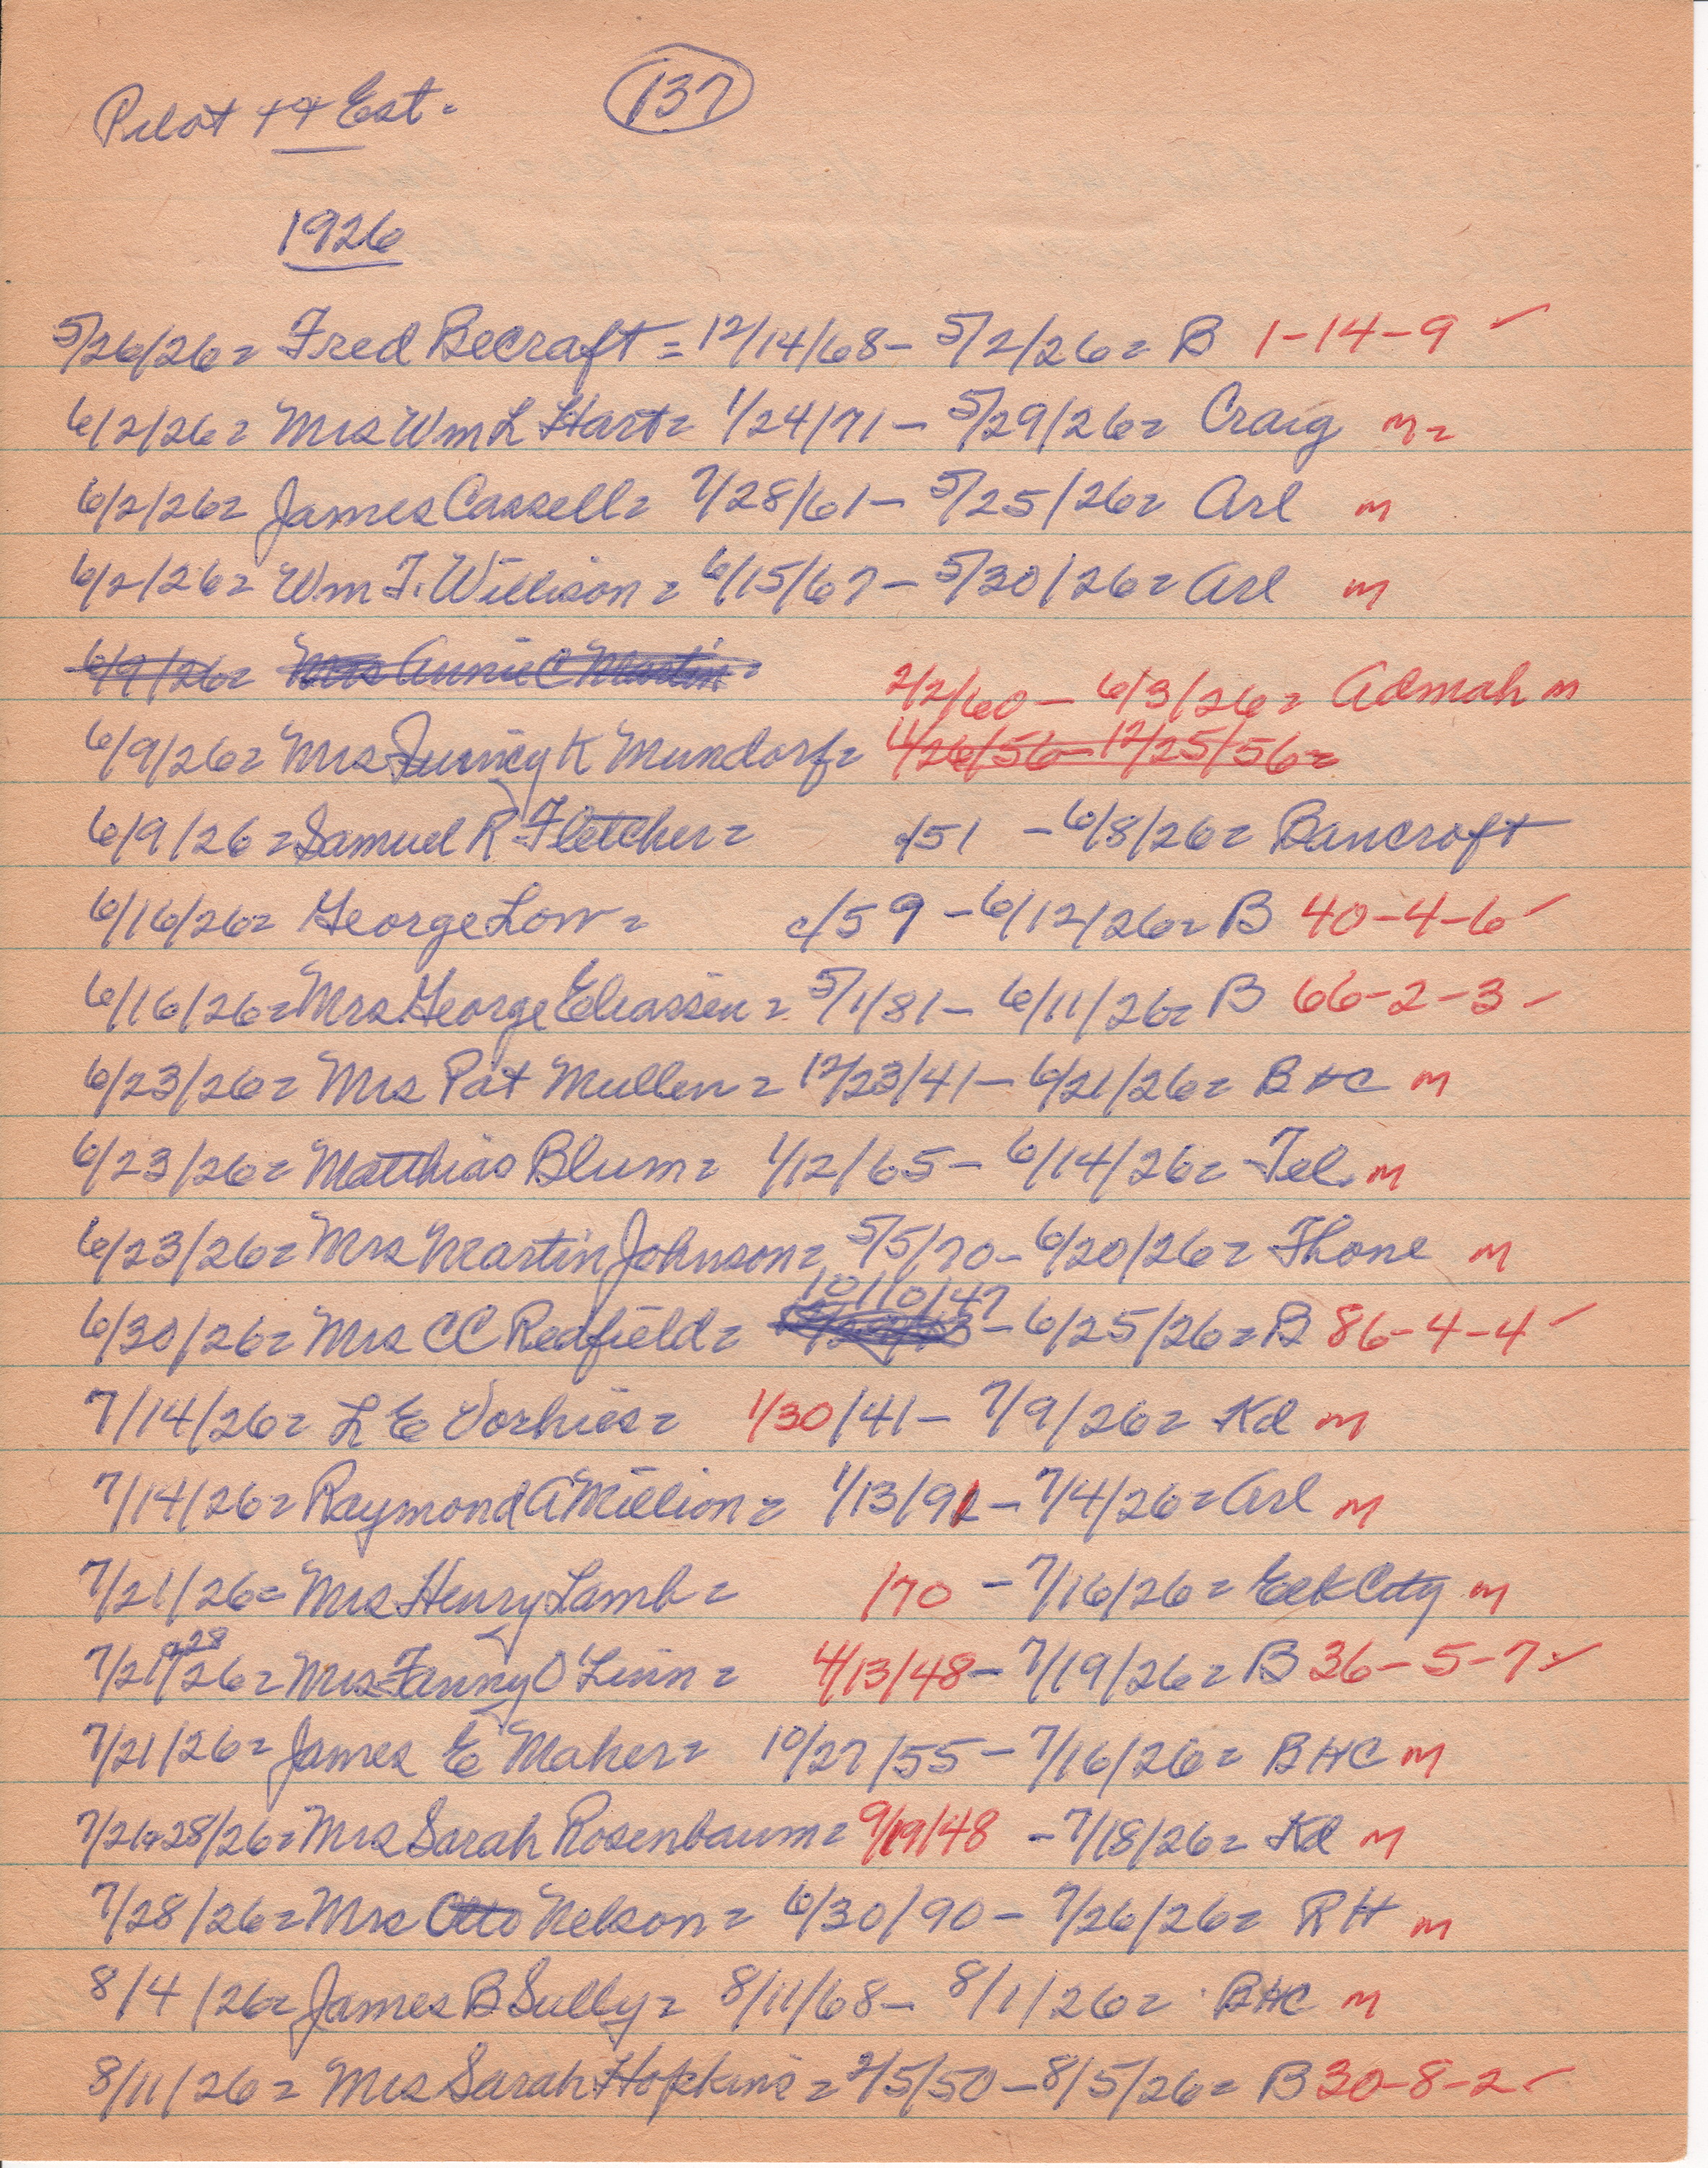 Pilot ++ Est= 137
1926
5/26/26= Fred Becraft= 12/14/68- 5/2/26= B 1-14-9 ✓
6/2/26= Mrs Wm L Hart= 1/24/71- 5/29/26= Craig m=
6/2/26= James Cassell= 7/28/61- 5/25/26= Arl m
6/2/26= Wm T. Willison= 6/15/67- 5/30/26= Arl m
6/9/26= Mrs Annie C Martin=
2/2/60- 6/3/26= Admah m
6/9/26= Mrs K Mundorf= 11/26/56-12/25/56=
6/9/26= Samuel R Fletcher= /51 -6/8/26= Bancroft
6/16/26= George Low= c/59 -6/12/26= B 40-4-6 ✓
6/16/26= Mrs George Eliassen= 5/1/81- 6/11/26= B 66-2-3 -
6/23/26= Mrs Pat Mullen= 12/23/41- 6/21/26= BHC m
6/23/26= Matthias Blum= 1/12/65- 6/14/26= Tek m
6/23/26= Mrs Martin Johnson= 5/5/70- 6/20/26= Fhone m
10/10/47
6/30/26= Mrs CC Redfield= -6/25/26= B 86-4-4 ✓
7/14/26= L E Vorhies= 1/30/41- 7/9/26= Kd m
7/14/26= Raymond A Million= 1/13/91- 7/4/26= Arl m
7/21/26= Mrs Henry Lamb= /70 -7/16/26= Elk City m
7/21+28/26= Mrs Fanny O Linn= 4/13/48- 7/19/26= B 36-5-7 ✓
7/21/26= James E Maher= 10/27/55- 7/16/26= BHC m
7/21+28/26= Mrs Sarah Rosenbaum= 9/19/48 -7/18/26= Kd m
7/28/26= Mrs Otto Nelson= 6/30/90- 7/26/26= RH m
8/4/26= James B Sully= 8/11/68- 8/1/26= BHC m
8/11/26= Mrs Sarah Hopkins= 2/5/50-8/5/26= B 30-8-2 ✓